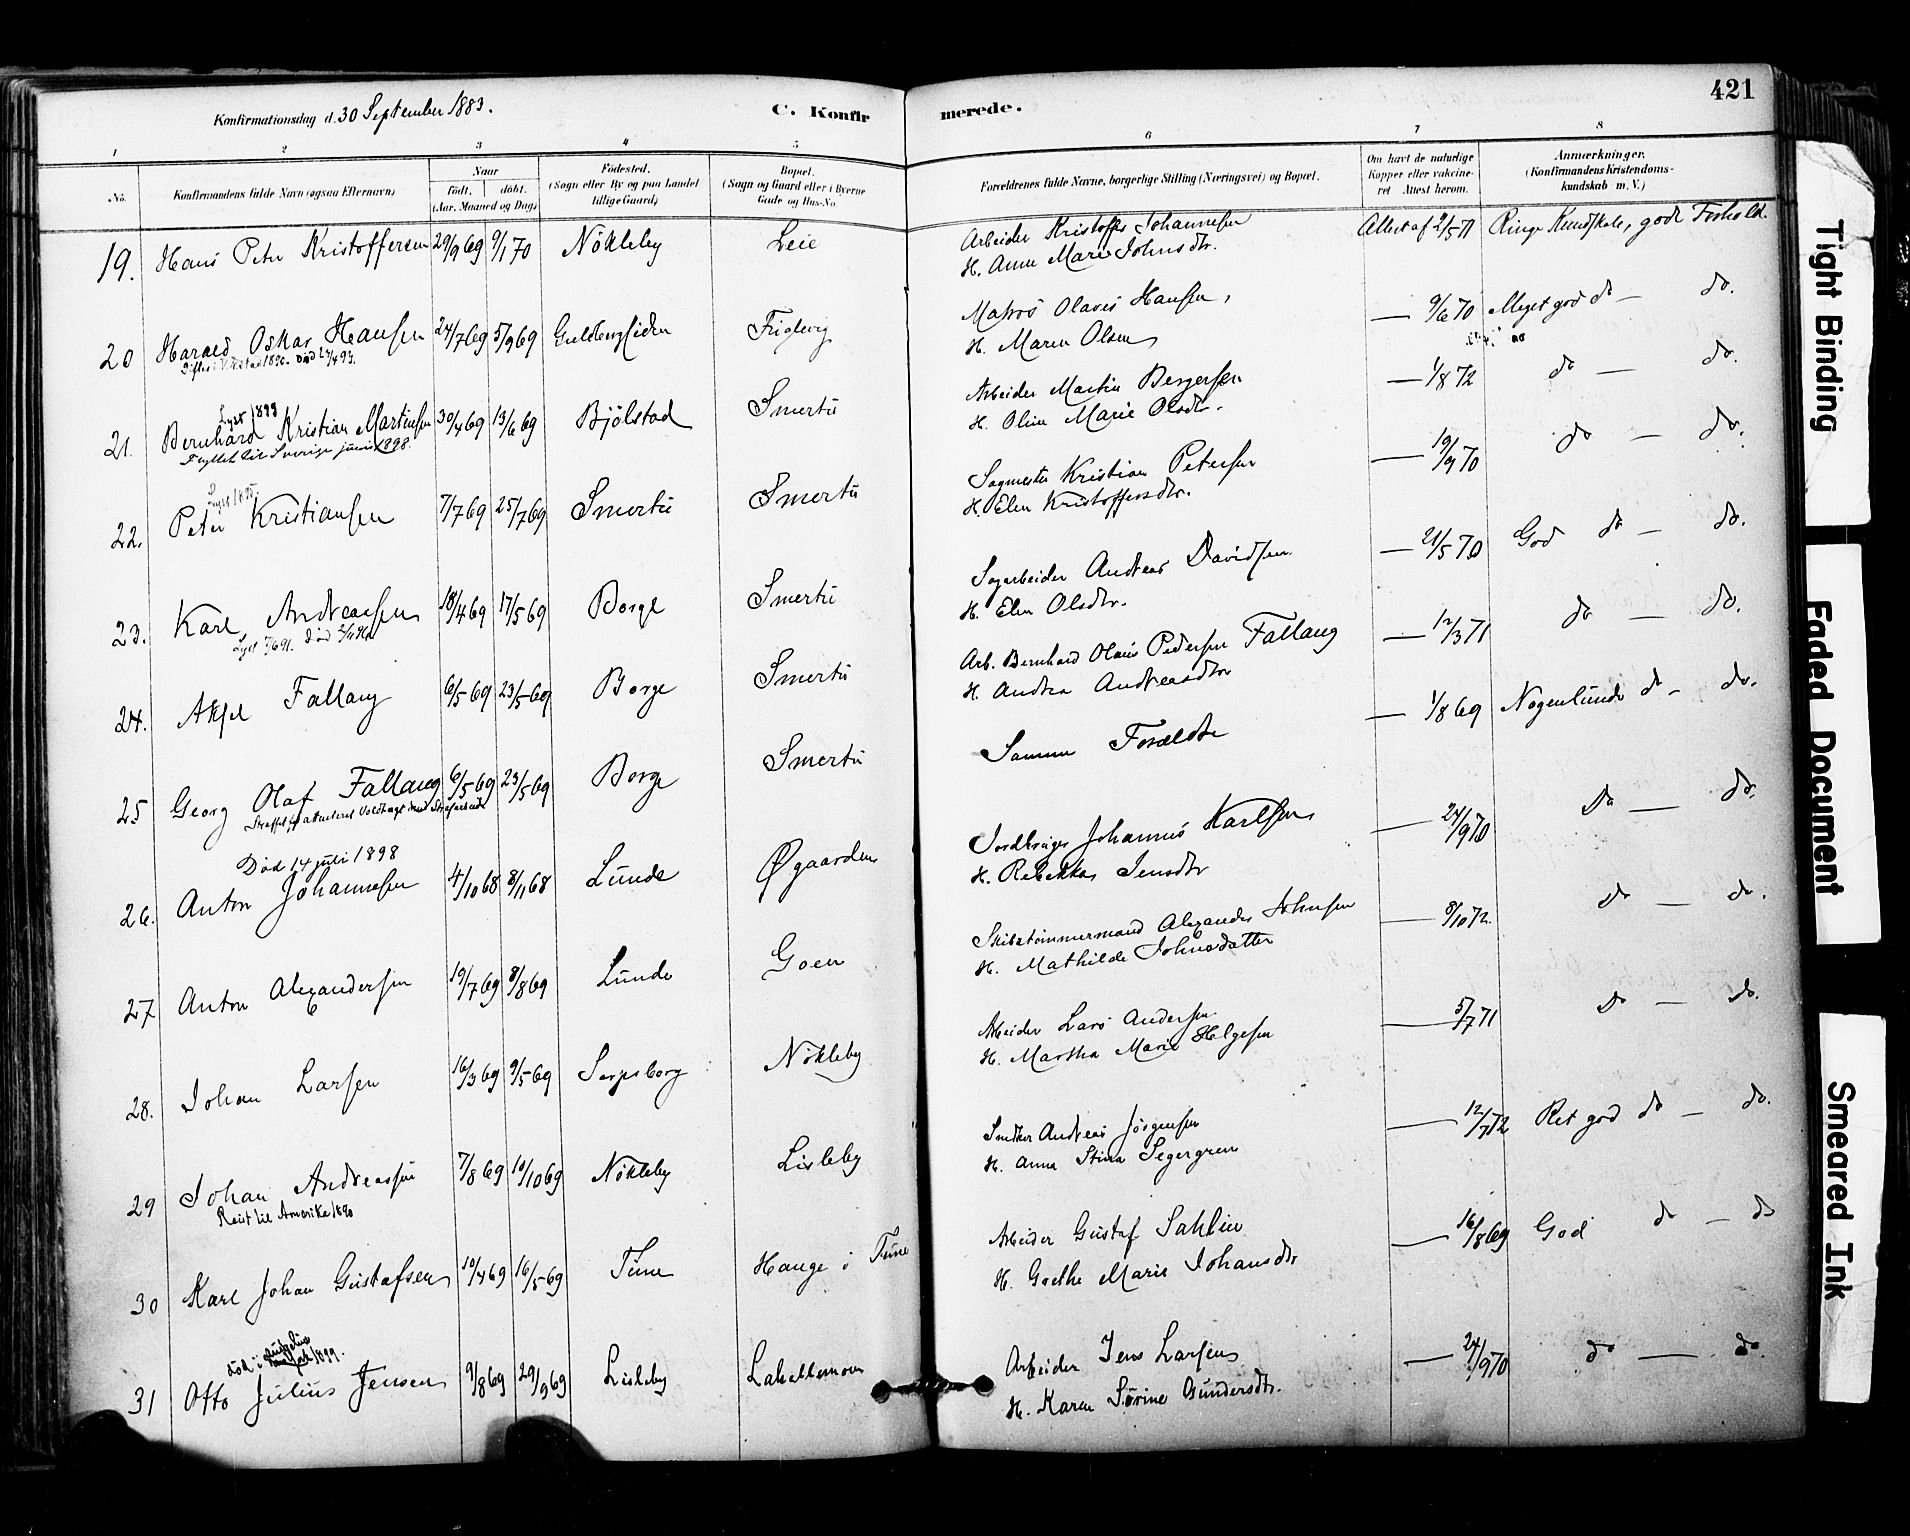 421
Konfirmationsdag d. 30 September 1883.
C. Konfirmerede.
1 2 3 4 5 6 7 8
No. Konfirmandens fulde Navn (ogsaa Efternavn) Naar født. døbt. (Aar, Maaned og Dag) Födested. (Sogn eller By og paa Landet tillige Gaard) Bopæl. (Sogn og Gaard eller i Byerne Gade og Hus-No. Forældrenes fulde Navne, borgerlige Stilling (Næringsvei) og Bopæl. Om havt de naturlige Kopper eller vaccineret Attest herom. Anmærkninger. (Konfirmandens Kristendomskundskab m. V.)
19. Hans Peter Kristoffersen 29/9 69 9/1 70 Nökleby Leie Arbeider Kristoffer Johannesen Attest af 2/5 71 Ringe Kundskab, godt Forhold.
H. Anne Marie Johnsdtr.
20 Harald Oskar Hansen 24/7 69 5/9 69 Guldbergsiden Matros Olaves Hansen, — 9/6 70 Meget god do — do.
H. Maren Olsen
Lyst 1899
21. Bernhard Kristian Martinsen 30/4 69 13/6 69 Bjölstad Smertu Arbeider Martin Bergersen — 1/8 72 do — do.
Flyttet til Sverige juni 1898.
H. Oline Marie Olsdtr.
Lyst 1895.
22. Peter Kristiansen 7/7 69 25/7 69 Smertu Smertu Sagmester Kristian Petersen — 19/9 70 do — do.
H. Elen Kristoffersdtr.
23. Karl Andreasen 18/4 69 17/5 69 Borge Smertu Sagarbeider Andreas Davidsen — 21/5 70 God do — do.
H. Elen Olsdtr.
24. Aksel Fallang 6/5 69 23/5 69 Borge Smertu Arb. Bernhard Olaus Pedersen Fallang — 12/3 71 do — do.
H. Andrea Andreasdtr
25 Georg Olaf Fallang 6/5 69 23/5 69 Borge Smertu Samme Forældre — 1/8 69 Nogenlunde do — do.
Død 14 juli 1898
26. Anton Johannesen 4/10 68 8/11 68 Lunde Øgaarden Jordbruger Johannes Karlsen — 24/9 70 Do — do.
H. Rebekka Jensdtr
27 Anton Alexandersen 19/7 69 8/8 69 Lunde Goen Skibstømmermand Alexander Johnsen — 8/10 72. do — do.
H. Mathilde Johnsdatter
28. Johan Larsen 16/3 69 9/5 69 Sarpsborg Nökleby Arbeider Lars Andersen — 5/7 71 Do — do.
H. Martha Marie Helgesen
29 Johan Andreassen 7/8 69 10/10 69 Nökleby Lisleby Snedker Andreas Jörgensen — 12/7 72 Ret god do — do.
Reist til Amerika 1890
H. Anna Stina Segergren
30 Karl Johan Gustafsen 10/4 69 16/5 69 Tune Hauge i Tune Arbeider Gustaf Sahlin — 16/8 69 God do — do
H. Grethe Marie Johansdtr
31 Otto Julius Jensen 9/8 69 29/9 69 Lisleby Labakkemoen Arbeider Jens Larsen — 24/9 70 do — do.
H. Karen Sörine Gundersdtr.
Tight Binding
Faded Document
Smeared Ink